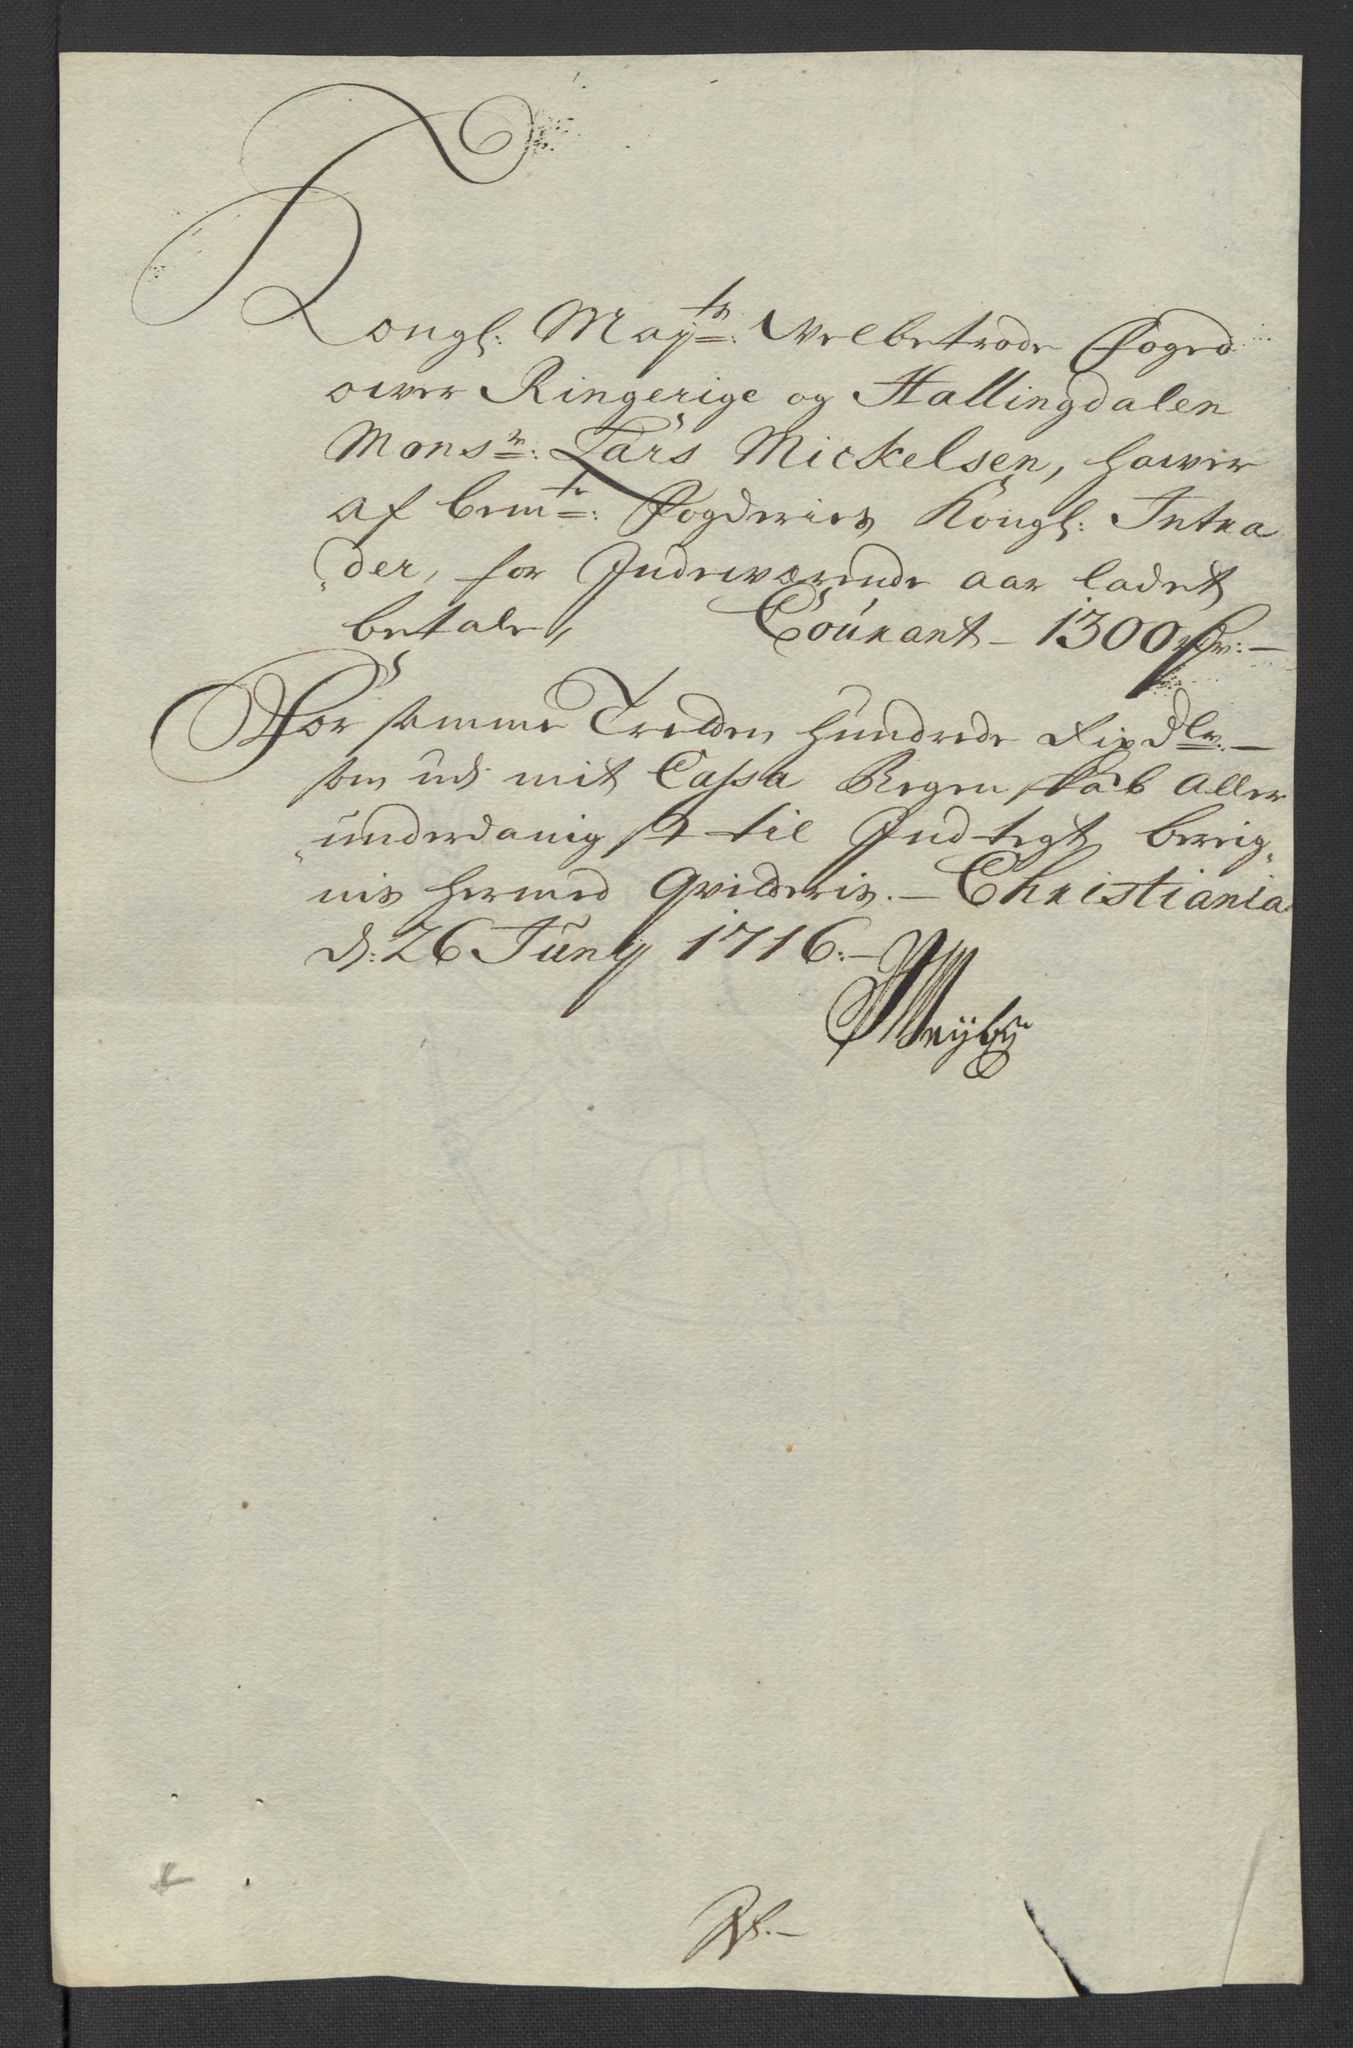 Kongl: May:ts Welbetrode Foged
ower Ringerige og Hallingdalen
Monsr: Lars Mickelsen, hawer
af bemte: Fogderies Kongl: Intra
„der, for Indewærende aar ladet
betale, Courant – 1300 rdr: –
For samme Tretten hundrede Rixdlr. –
som udj mit Cassa Regenskab aller
„underdanigst til Indtegt bereig„
nis hermed Qvitteris. – Christiania
d: 26 Junÿ 1716: –